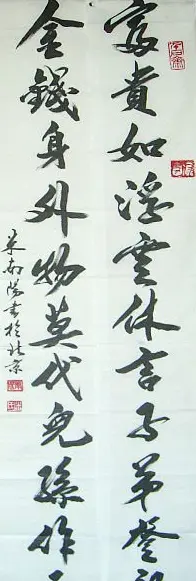 富貴如浮雲休言子弟登
金錢身外物莫代兒孫作
米南陽書於北京